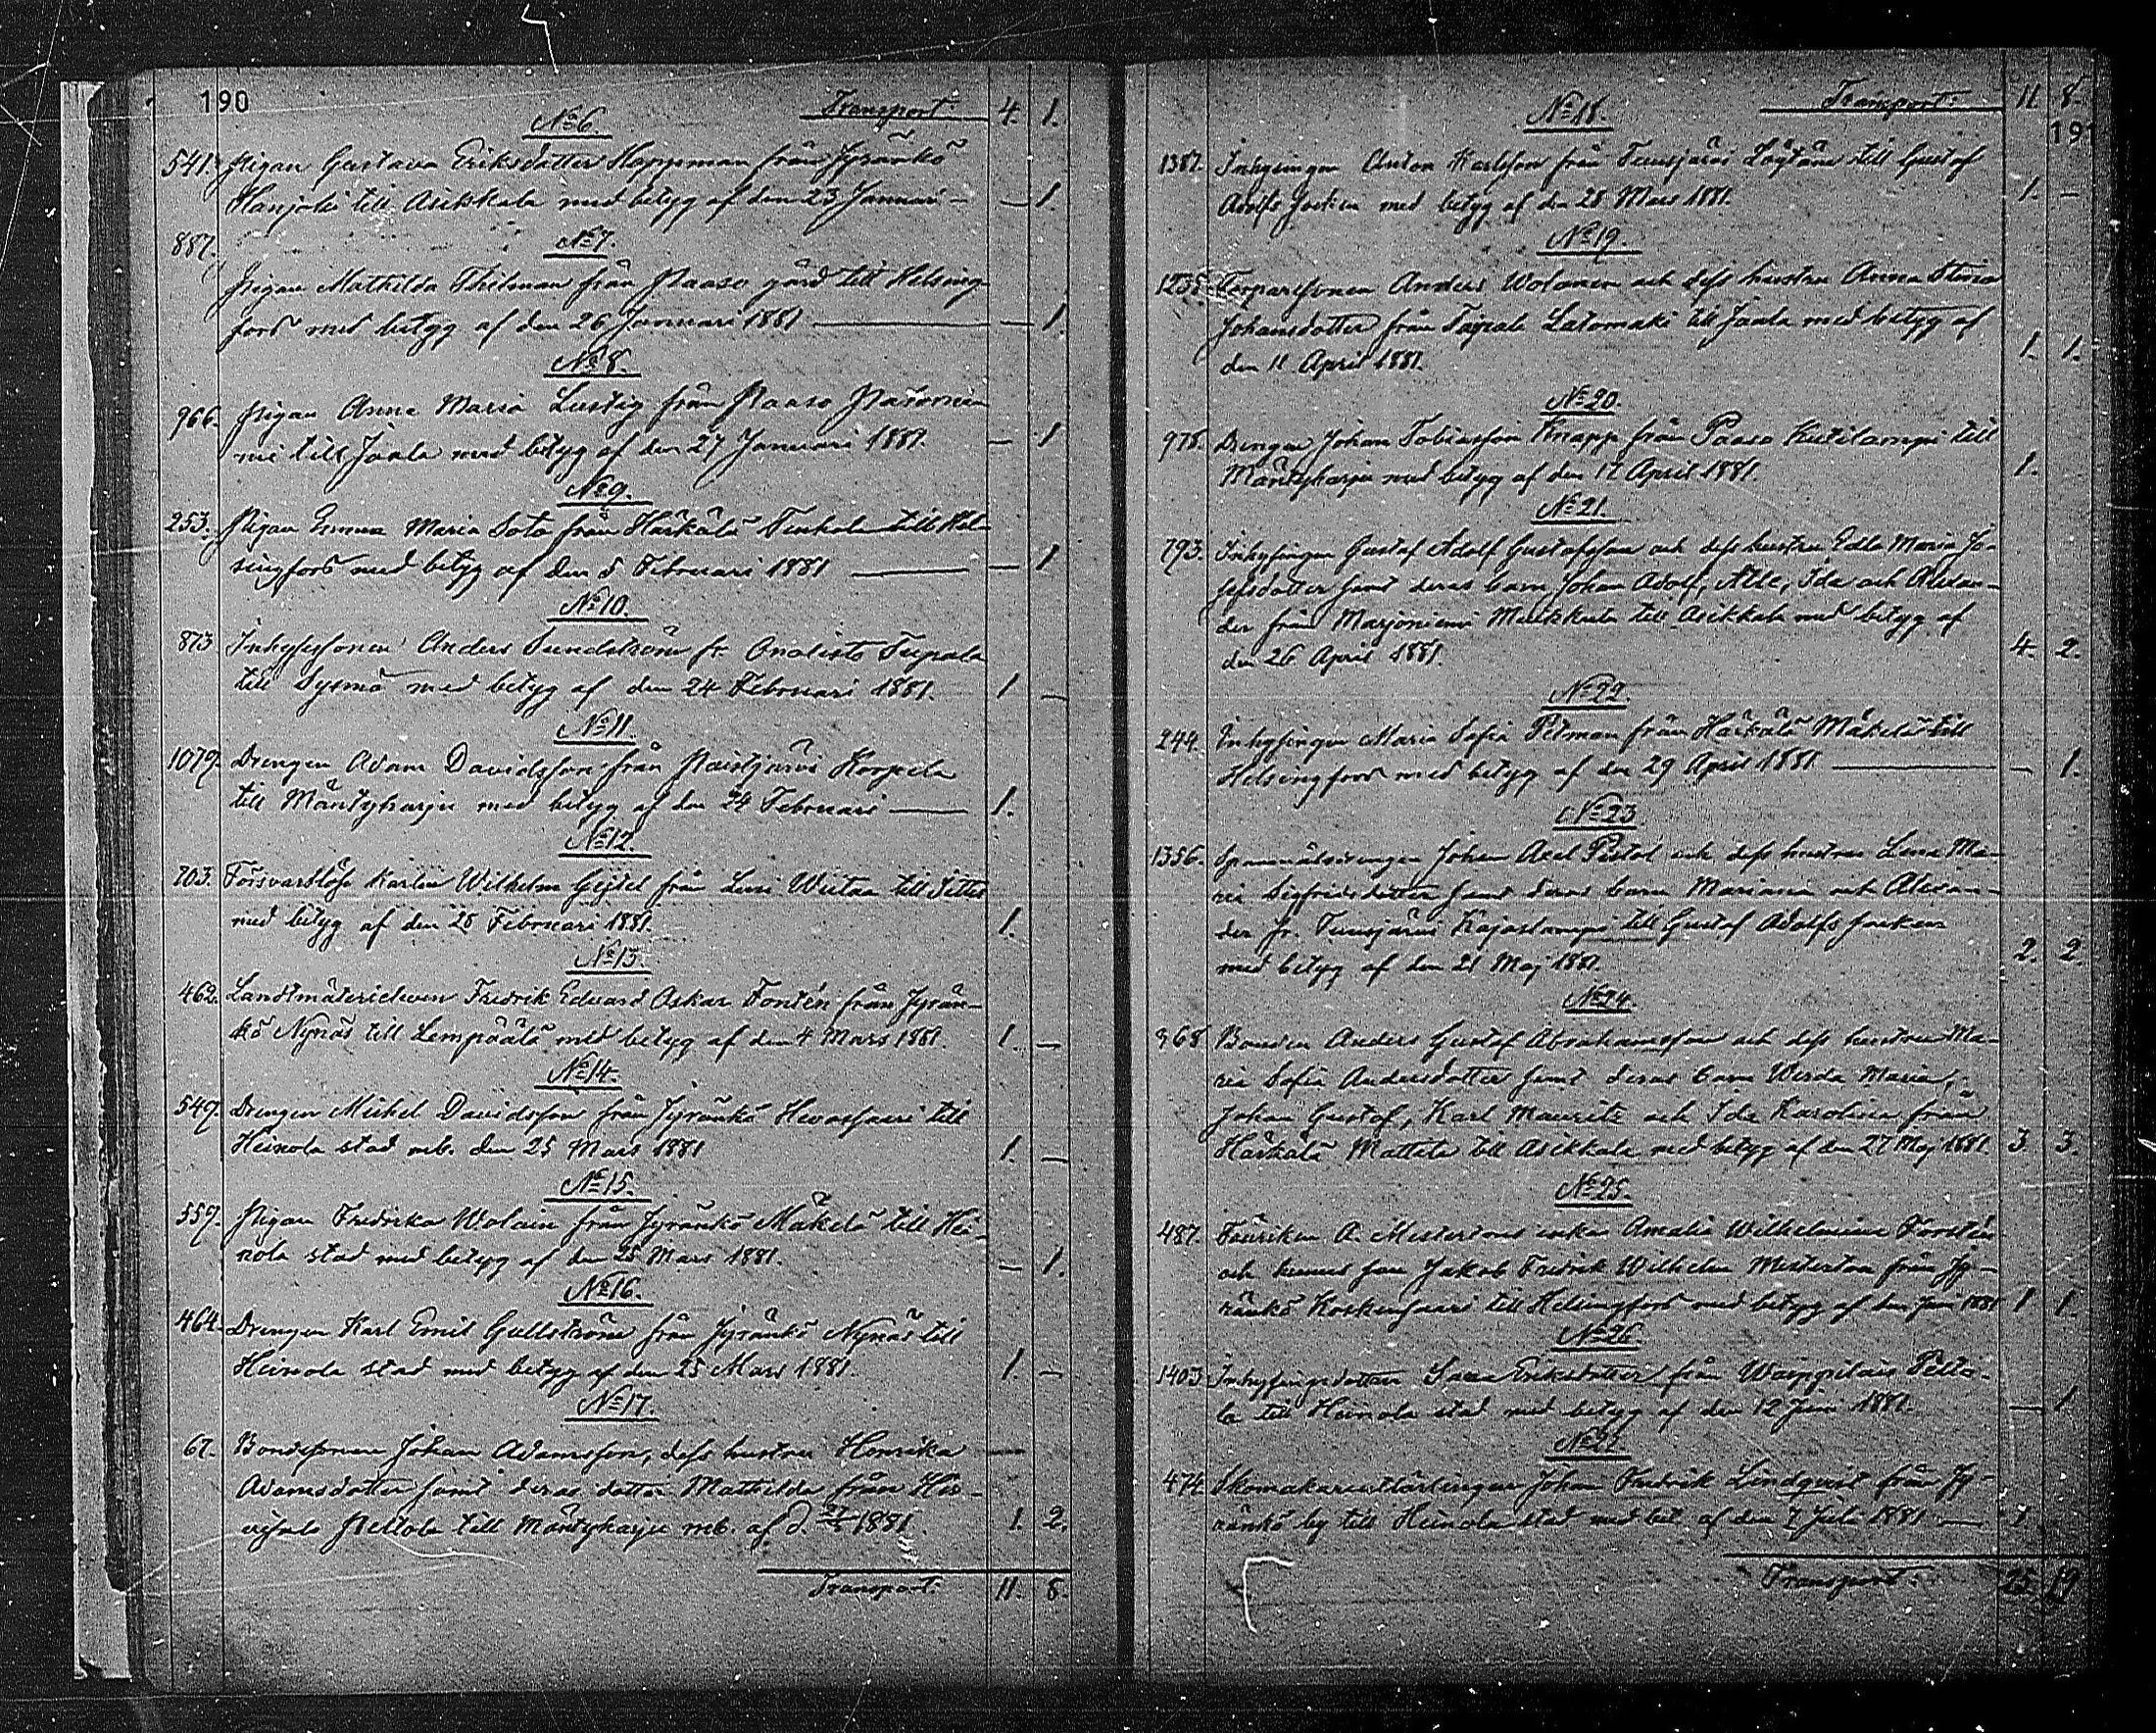 190
Transport: 4. 1.
No 6.
541. Pigan Gustava Eriksdotter Kappman från Jyränkö
Hanjoki till Asikkala med betyg af den 23 Januari — — 1.
887. No 7.
Pigan Mathilda Thilman från Paaso gård till Helsing-
fors med betyg af den 26 Januari 1881 — — 1.
No 8.
966. Pigan Anna Maria Lustig från Paaso Paronie-
mi till Jaala med betyg af den 27 Januari 1881. — 1
No 9.
253. Pigan Emma Maria Soto från Härkälä till Hel-
singfors med betyg af den 5 Februari 1881 — — 1
No 10.
873 Inhysessonen Anders Sundström fr. Onalisto Tupala
till Sysmä med betyg af den 24 Februari 1881. 1 —
No 11.
1079. Drengen Adam Davidsson från Paistjärvi Korpela
till Mäntyharju med betyg af den 24 Februari — 1.
No 12.
703. Försvarslöse karlen Wilhelm från Lusi till Sitters
med betyg af den 28 Februari 1881. 1.
No 13.
462. Landtmäterieleven Fredrik Eduard Oskar Fontén från Jyrän-
kö Nynäs till Lempäälä med betyg af den 4 Mars 1881. 1. —
No 14.
549. Drengen Mikel Davidsson från Jyränkö Hevossaari till
Heinola stad mb. den 25 Mars 1881 1. —
No 15.
559. Pigan Fredrika Wolain från Jyränkö Mäkelä till Hei-
nola stad med betyg af den 25 Mars 1881. — 1.
No 16.
464. Drengen Karl Emil Gullström från Jyränkö Nynäs till
Heinola stad med betyg af den 25 Mars 1881. 1. —
No 17.
67. Bondesonen Johan Adamsson, dess hustru Henrika —
Adamsdotter samt deras dotter Mathilda från
Peltola till Mäntyharju mb. af d. 1881. 1. 2.
Transport: 11. 8.
Transport: 11. 8.
19
No 18.
1387. Inhysingen Anton Karlsson från Tuusjärvi Löytäna till Gustaf
Adolfs socken med betyg af den 28 Mars 1881. 1. —
No 19.
1235. Torparesonen Anders Wolanen och dess hustru Anna Stina
Johansdotter från Taipale Latomäki till Jaala med betyg af
den 11 April 1881. 1. 1.
No 20.
978. Drengen Johan Tobiasson Knapp från Paaso Kutilampi till
Mäntyharju med betyg af den 17 April 1881. 1.
No 21.
793. Inhysingen Gustaf Adolf Gustafsson och dess hustru Edla Maria Jo-
sefsdotter samt deras barn Johan Adolf, Alda, Ida och Alexan-
der från Marjoniemi Muikkula till Asikkala med betyg af
den 26 April 1881. 4. 2.
No 22.
244. Inhysingen Maria Sofia Petman från Härkälä Mäkelä till
Helsingfors med betyg af den 29 April 1881 — — 1.
No 23
1356. Spannmålsdrengen Johan Axel Pistol och dess hustru Lena Ma-
ria Sigfridsdotter samt deras barn Mariana och Alexan-
der fr. Tuusjärvi Kajaslampi till Gustaf Adolfs socken
med betyg af den 21 Maj 1881. 2. 2.
No 24.
368. Bonden Anders Gustaf Abrahamsson och dess hustru Ma-
ria Sofia Andersdotter samt deras barn Werda Maria,
Johan Gustaf, Karl Maurits och Ida Karolina från
Härkälä Mattila till Asikkala med betyg af den 27 Maj 1881. 3 3.
No 25.
487. Fänriken A. Mestertons enka Amalia Wilhelmina Forstén
och hennes son Jakob Fredrik Wilhelm Mesterton från Jy-
ränkö Koskensaari till Helsingfors med betyg af den Juni 1881 1 1.
No 26.
1403 Inhysingsdottren Eriksdotter från Pelto-
la till Heinola stad med betyg af den 12 Juni 1881. — 1
No 27
474 Skomakarelärlingen Johan Fredrik Lindqvist från Jy-
ränkö by till Heinola stad med bet. af den 7 Juli 1881 — 1
Transport: 25 19